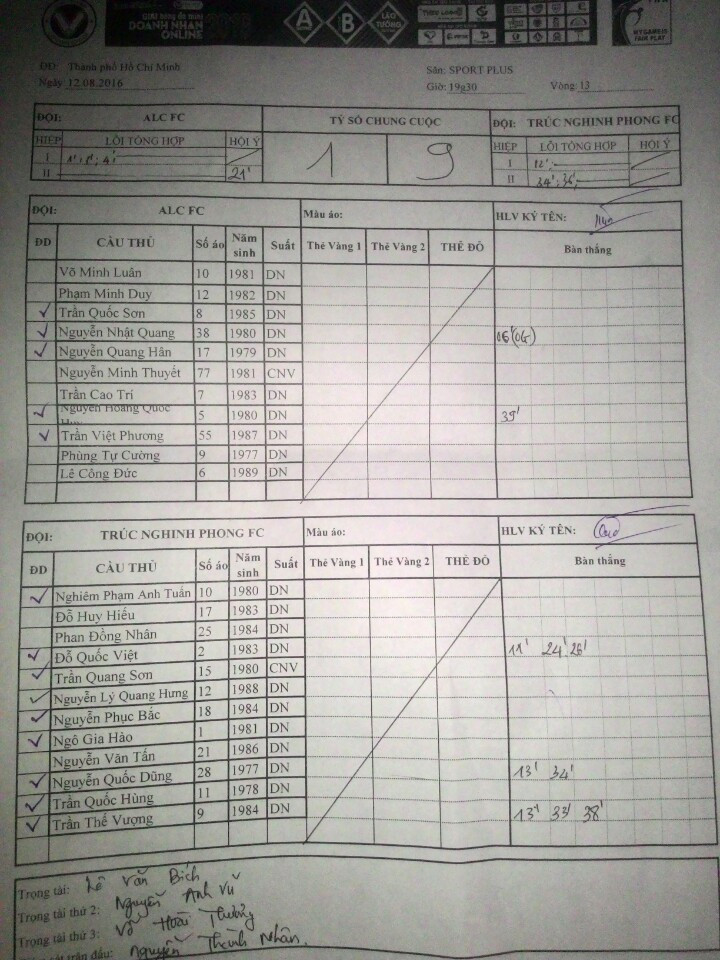 DOANH NHÂN
ONLINE
A B LÃO TƯỚNG
FAIR PLAY
ĐĐ: Thành phố Hồ Chí Minh
Sân: SPORT PLUS
Ngày: 12.08.2016
Giờ: 19g30 Vòng: 13
ĐỘI: ALC FC TỶ SỐ CHUNG CUỘC ĐỘI: TRÚC NGHINH PHONG FC
HIỆP LỖI TỔNG HỢP HỘI Ý 1 9 HIỆP LỖI TỔNG HỢP HỘI Ý
I 4' I 12'
II 21' II 34' 36'
ĐỘI: ALC FC Màu áo: HLV KÝ TÊN:
ĐD CẦU THỦ Số áo Năm sinh Suất Thẻ Vàng 1 Thẻ Vàng 2 THẺ ĐỎ Bàn thắng
Võ Minh Luân 10 1981 DN
Phạm Minh Duy 12 1982 DN
✓ Trần Quốc Sơn 8 1985 DN
✓ Nguyễn Nhật Quang 38 1980 DN 06'(OG)
✓ Nguyễn Quang Hân 17 1979 DN
Nguyễn Minh Thuyết 77 1981 CNV
Trần Cao Trí 7 1983 DN
✓ Nguyễn Hoàng Quốc 5 1980 DN 39'
✓ Trần Việt Phương 55 1987 DN
Phùng Tự Cường 9 1977 DN
Lê Công Đức 6 1989 DN
ĐỘI: TRÚC NGHINH PHONG FC Màu áo: HLV KÝ TÊN:
ĐD CẦU THỦ Số áo Năm sinh Suất Thẻ Vàng 1 Thẻ Vàng 2 THẺ ĐỎ Bàn thắng
✓ Nghiêm Phạm Anh Tuấn 10 1980 DN
Đỗ Huy Hiếu 17 1983 DN
Phan Đồng Nhân 25 1984 DN
✓ Đỗ Quốc Việt 2 1983 DN 11' 24' 26'
✓ Trần Quang Sơn 15 1980 CNV
✓ Nguyễn Lý Quang Hưng 12 1988 DN
✓ Nguyễn Phục Bắc 18 1984 DN
✓ Ngô Gia Hào 1 1981 DN
Nguyễn Văn Tấn 21 1986 DN
✓ Nguyễn Quốc Dũng 28 1977 DN 13' 34'
✓ Trần Quốc Hùng 11 1978 DN
✓ Trần Thế Vượng 9 1984 DN 13' 33' 38'
Trọng tài: Lê Văn Bích
Trọng tài thứ 2: Nguyễn Anh Vũ
Trọng tài thứ 3: Võ Hoài Thưởng
trận đấu: Nguyễn Thành Nhân